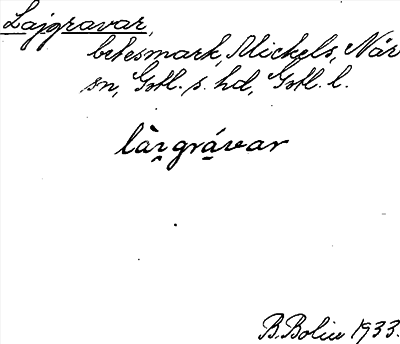 Lajgravar,
betesmark, Mickels, När
sn, Gotl. s. hd, Gotl. l.
làı̰grá̱var
B. Bolin 1933.